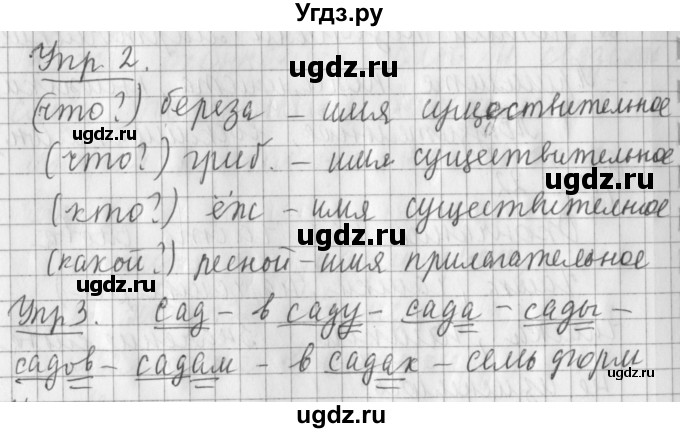 Угдз.ру
Упр 2.
ugdz.ru
(что?) береза – имя существительное
ugdz.ru
(что?) гриб. – имя существительное
ugdz.ru
(кто?) ёж – имя существительное
ugdz.ru
(какой?) лесной – имя прилагательное
Упр 3. сад – в саду – сада – сады –
ugdz.ru
садов – садам – в садах – семь форм
ugdz.ru
ugdz.ru